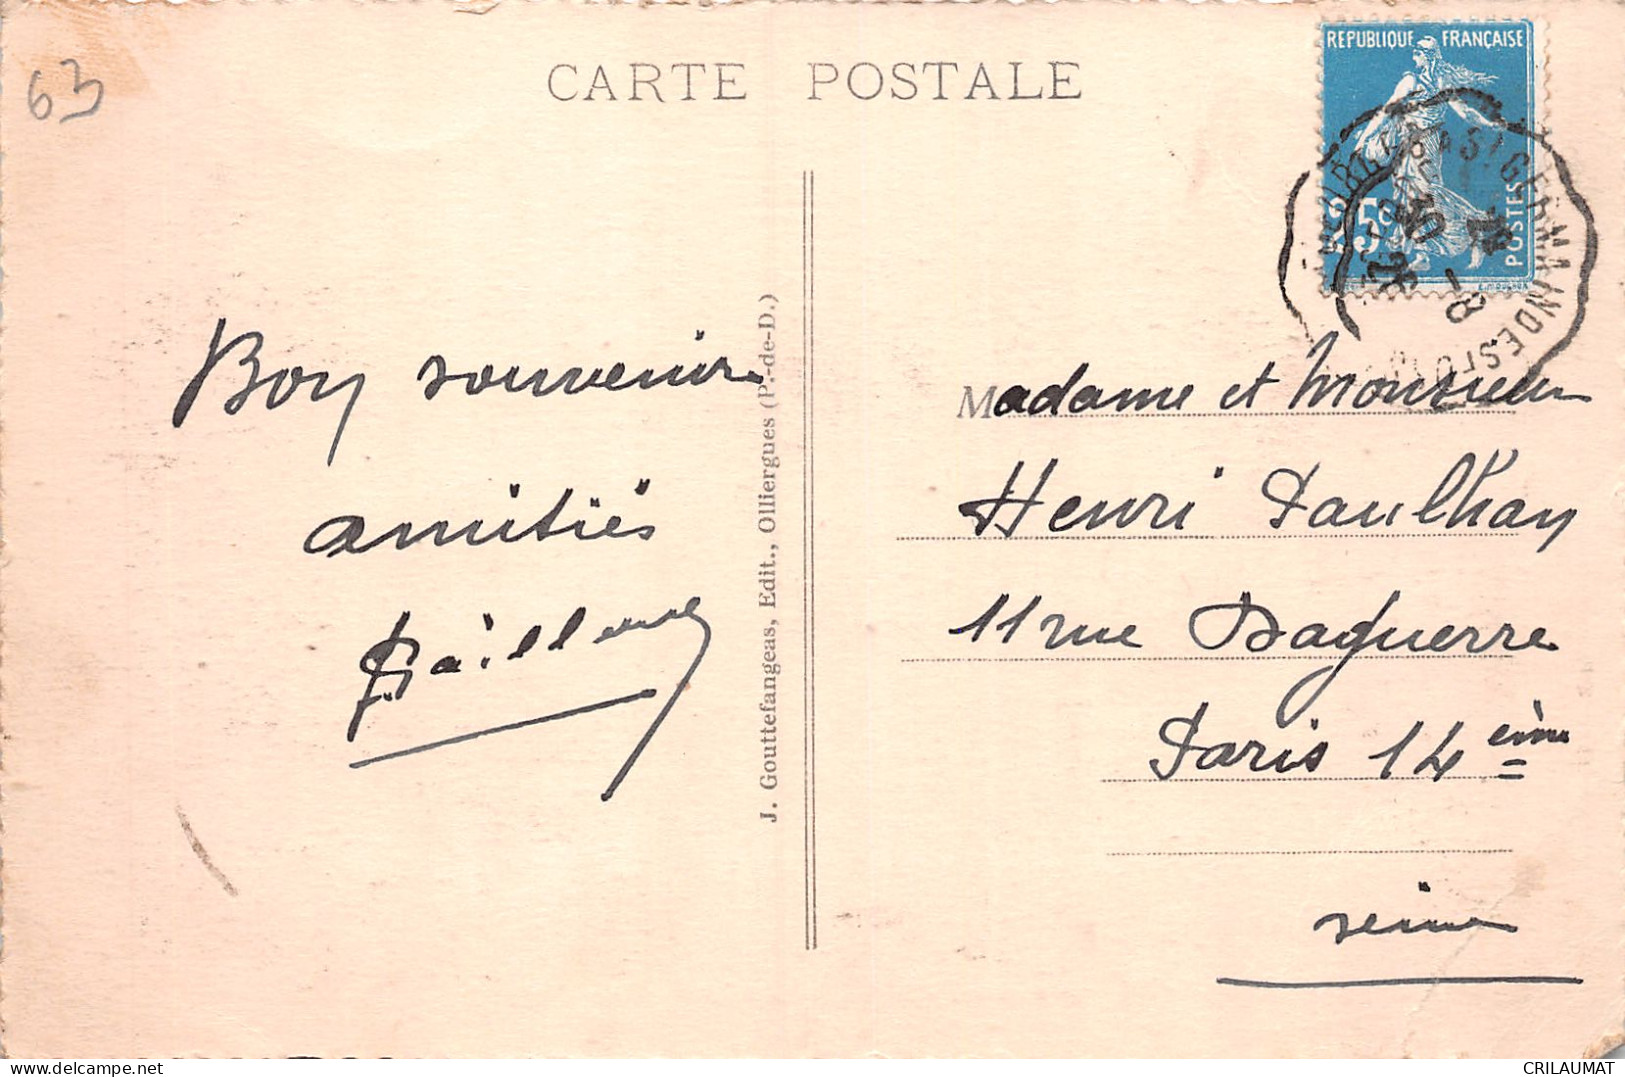 63
CARTE POSTALE
REPUBLIQUE FRANÇAISE
25c
POSTES
Bon souvenir
amitiés
J. Gouttefangeas, Edit., Olliergues (P.-de-D.)
Madame et Monsieur
Henri Paulhan
11 rue Daguerre
Paris 14 ème
seine
CRILAUMAT